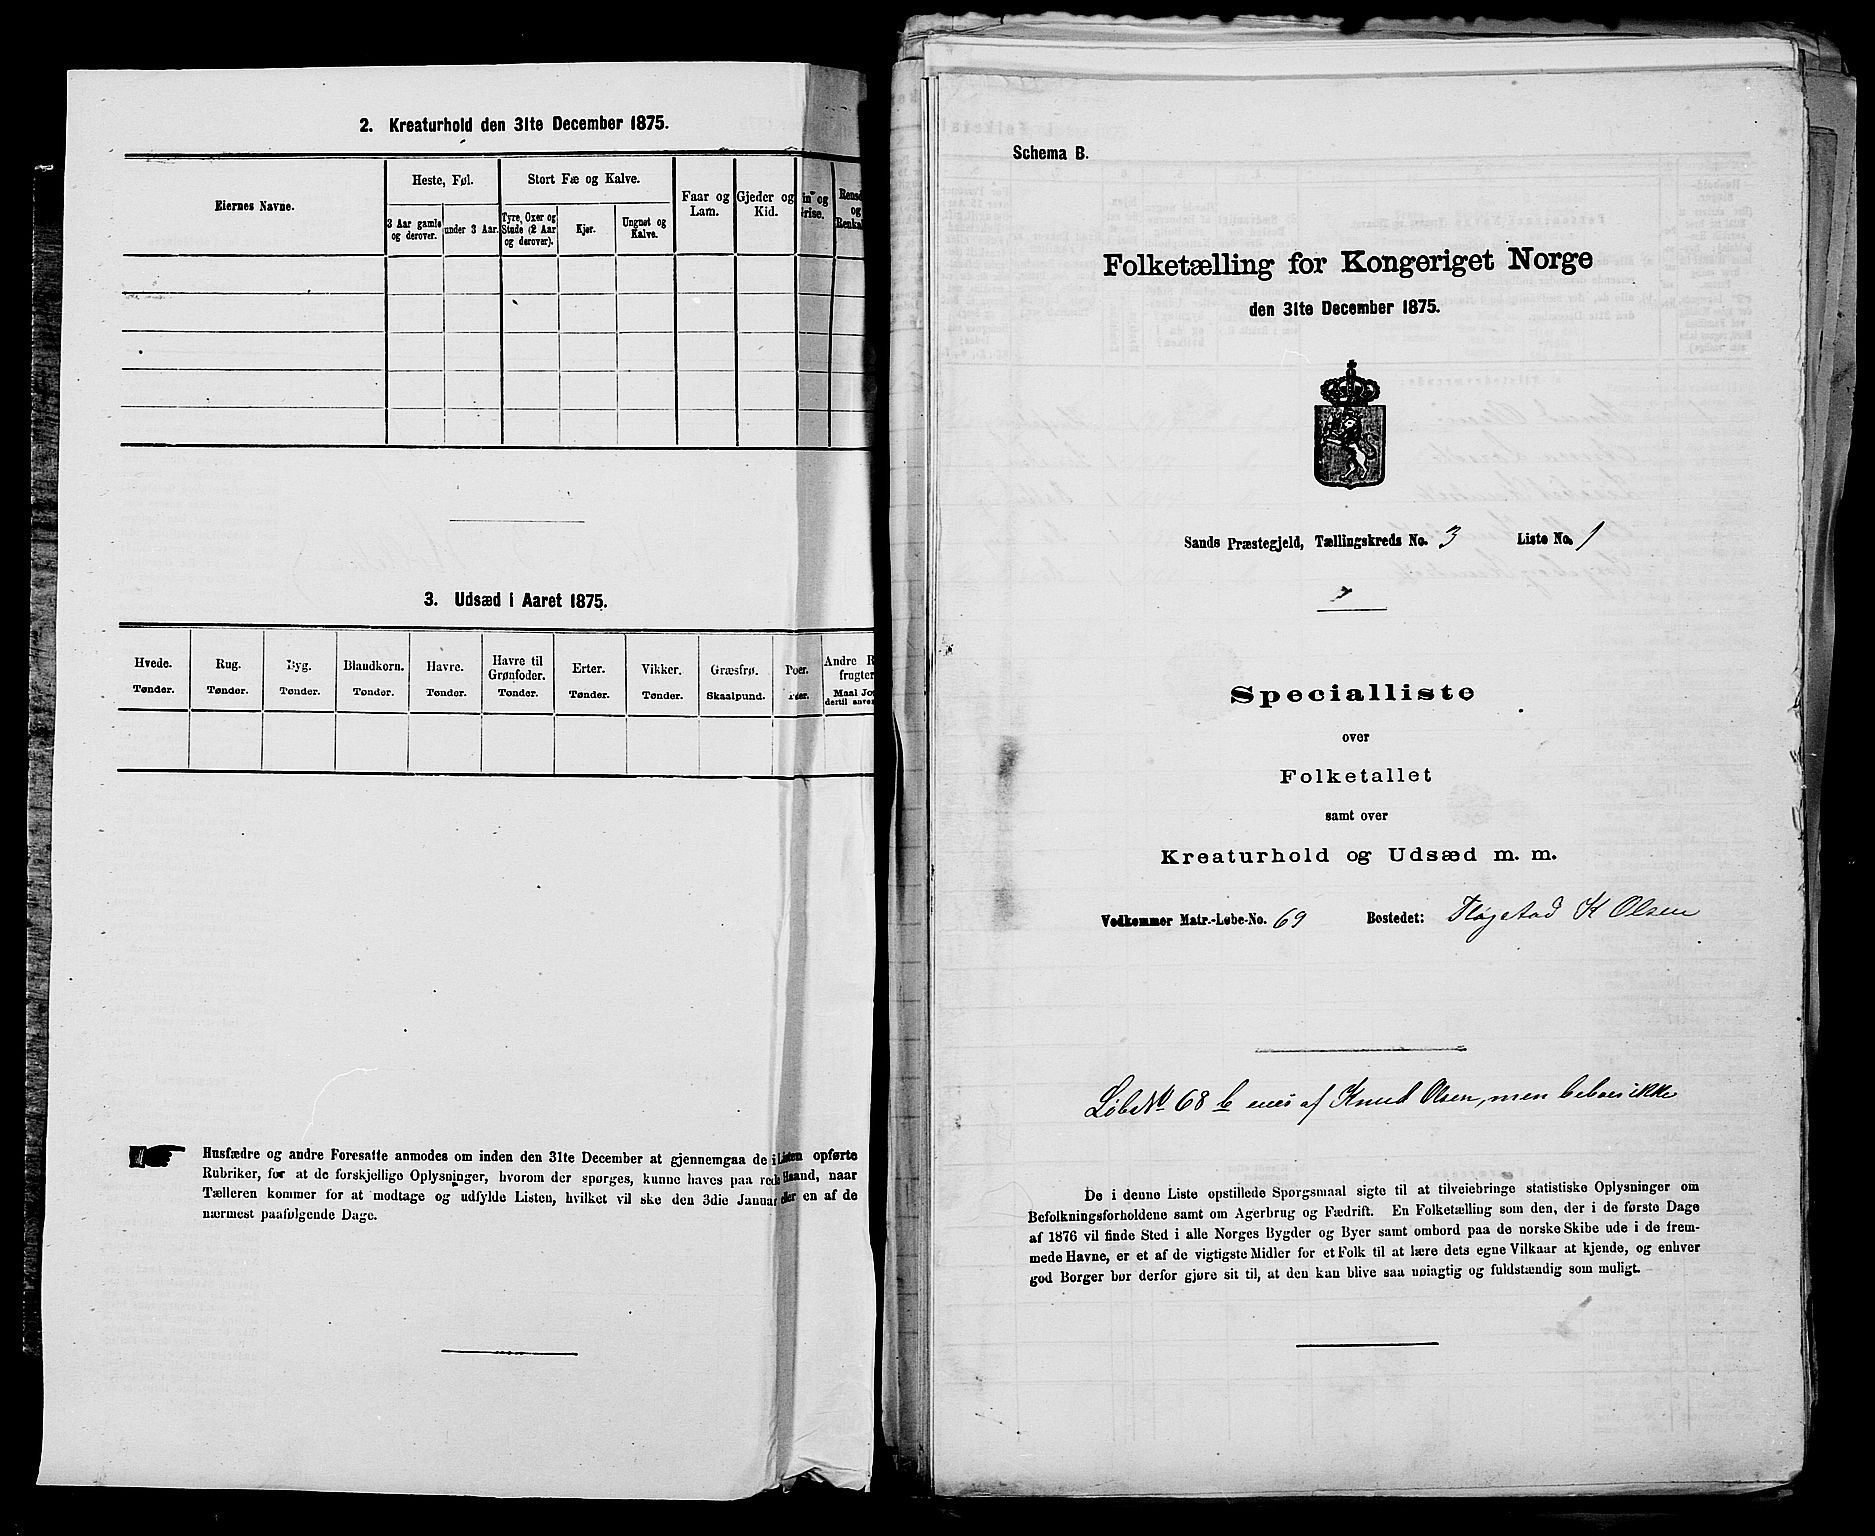 2. Kreaturhold den 31te December 1875.
Eiernes Navne.
Heste, Føl.
Stort Fæ og Kalve.
Faar og
Lam.
Gjeder og
Kid.
3 Aar gamle
og derover.
under 3 Aar.
Tyre, Oxer og
Stude (2 Aar
og derover).
Kjør.
Ungnøt og
Kalve.
3. Udsæd i Aaret 1875.
Hvede.
Tønder.
Rug.
Tønder.
Byg.
Tønder.
Blandkorn.
Tønder.
Havre.
Tønder.
Havre til
Grønfoder.
Tønder.
Erter.
Tønder.
Vikker.
Tønder.
Græsfrø.
Skaalpund.
Andre R
frugter
Maal Jo
dertil anve
Husfædre og andre Foresatte anmodes om inden den 31te December at gjennemgaa de i Listen opførte
Rubriker, for at de forskjellige Oplysninger, hvorom der spørges, kunne haves paa rede Haand, naar
Tælleren kommer for at modtage og udfylde Listen, hvilket vil ske den 3die Januar eller en af de
nærmest paafølgende Dage.
Schema B.
Folketælling for Kongeriget Norge
den 31te December 1875.
Sands Præstegjeld, Tællingskreds No. 3 Liste No. 1
Specialliste
over
Folketallet
samt over
Kreaturhold og Udsæd m. m.
Vedkommer Matr.-Løbe-No. 69 Bostedet: Fløgstad K Olsen
Løbe No 68 b eies af Knud Olsen, men beboes ikke
De i denne Liste opstillede Spørgsmaal sigte til at tilveiebringe statistiske Oplysninger om
Befolkningsforholdene samt om Agerbrug og Fædrift. En Folketælling som den, der i de første Dage
af 1876 vil finde Sted i alle Norges Bygder og Byer samt ombord paa de norske Skibe ude i de frem-
mede Havne, er et af de vigtigste Midler for et Folk til at lære dets egne Vilkaar at kjende, og enhver
god Borger bør derfor gjøre sit til, at den kan blive saa nøiagtig og fuldstændig som muligt.